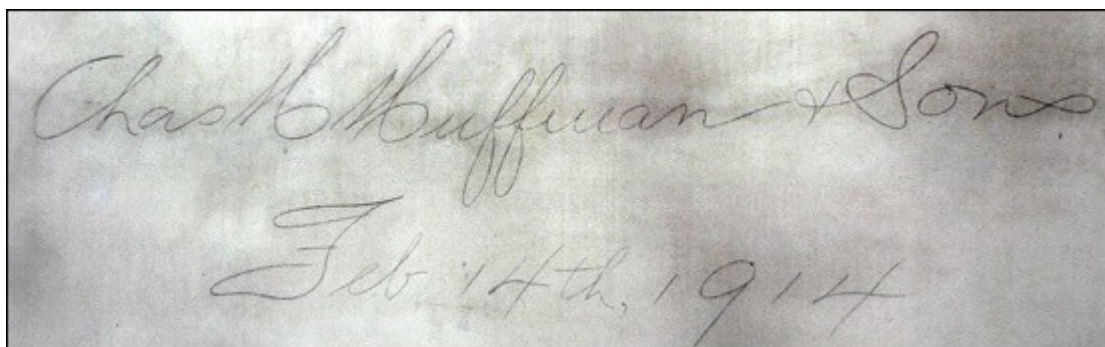 Chas H Huffman & Sons
Feb 14th, 1914